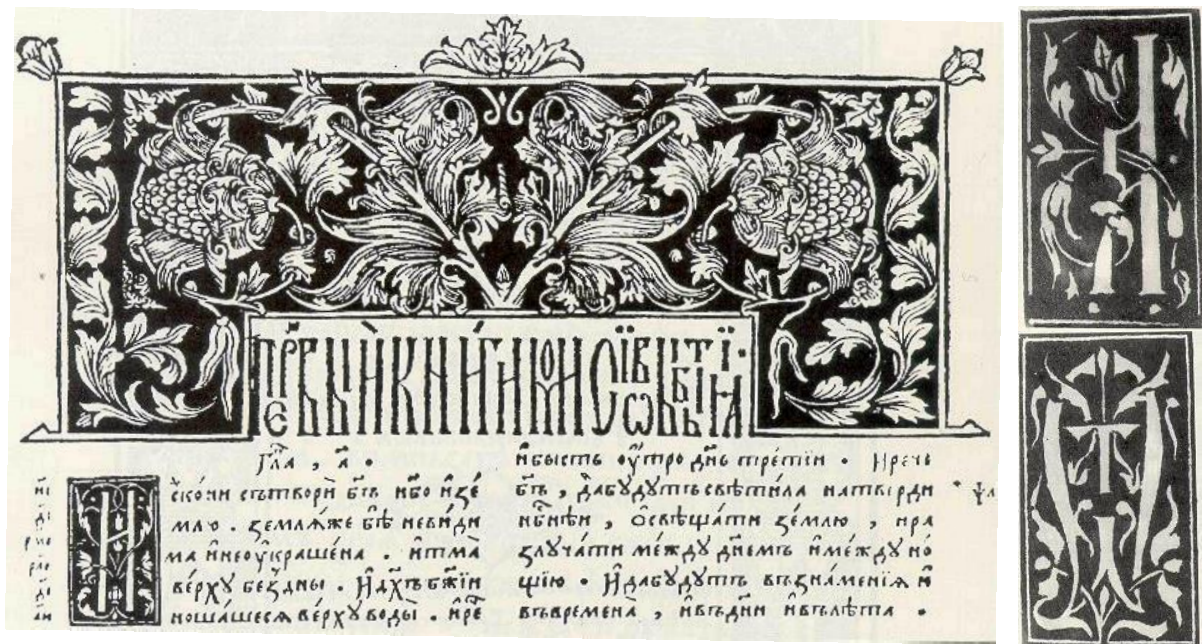 КНИ́ГИ
гл҃а , а҃ .
И
ско́ни сътворѝ бг҃ъ нб҃о и҆зе́
млю . землѧ́же бѣ̀ неви́ди
ма и҆неоу҆кра́шена . и҆тма̀
ве́рху бе́здны . И҆дх҃ъ бж҃їи
ноша́шесѧ ве́рху воды̀ . и҆ре҇
и҆бы́сть оу҆́тро дн҃ь тре́тїи . И҆рече
бг҃ъ , да̀бу́дутъ свѣти́ла на тве́рди
нбⷭ҇нѣи , ѡ҆свѣща́ти зе́млю , и҆ра
злуча́ти ме́жду дн҃емъ и҆ме́жду но́
щїю . И҆да бу́дутъ въ зна́менїѧ и҆
въвремена̀ , и҆въднѝ и҆въ лѣ́та .
И
Ѿ